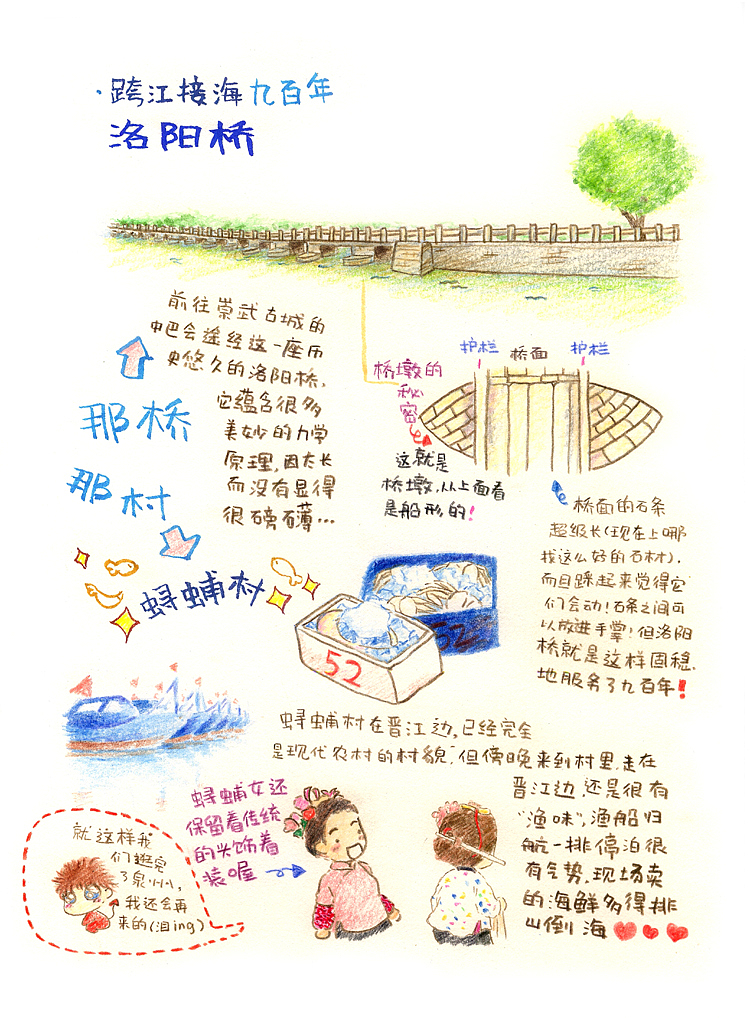 ·跨江接海九百年
洛阳桥
前往崇武古城的
中巴会途经这一座历
史悠久的洛阳桥,
它蕴含很多
美妙的力学
原理,因太长
而没有显得
很磅礴…
那桥
那村
桥墩的
秘
密
护栏 桥面 护栏
这就是
桥墩,从上面看
是船形的!
桥面的石条
超级长(现在上哪
找这么好的石材).
而且踩起来觉得它
们会动!石条之间可
以放进手掌!但洛阳
桥就是这样固稳.
地服务了九百年!
蟳蜅村
52
52
蟳蜅村在晋江边,已经完全
是现代农村的村貌,但傍晚来到村里,走在
晋江边,还是很有
“渔味”,渔船归
航一排停泊很
有气势,现场卖
的海鲜多得排
山倒海
蟳蜅女还
保留着传统
的头饰着
装喔
就这样我
们逛完
了泉州,
我还会再
来的(泪ing)